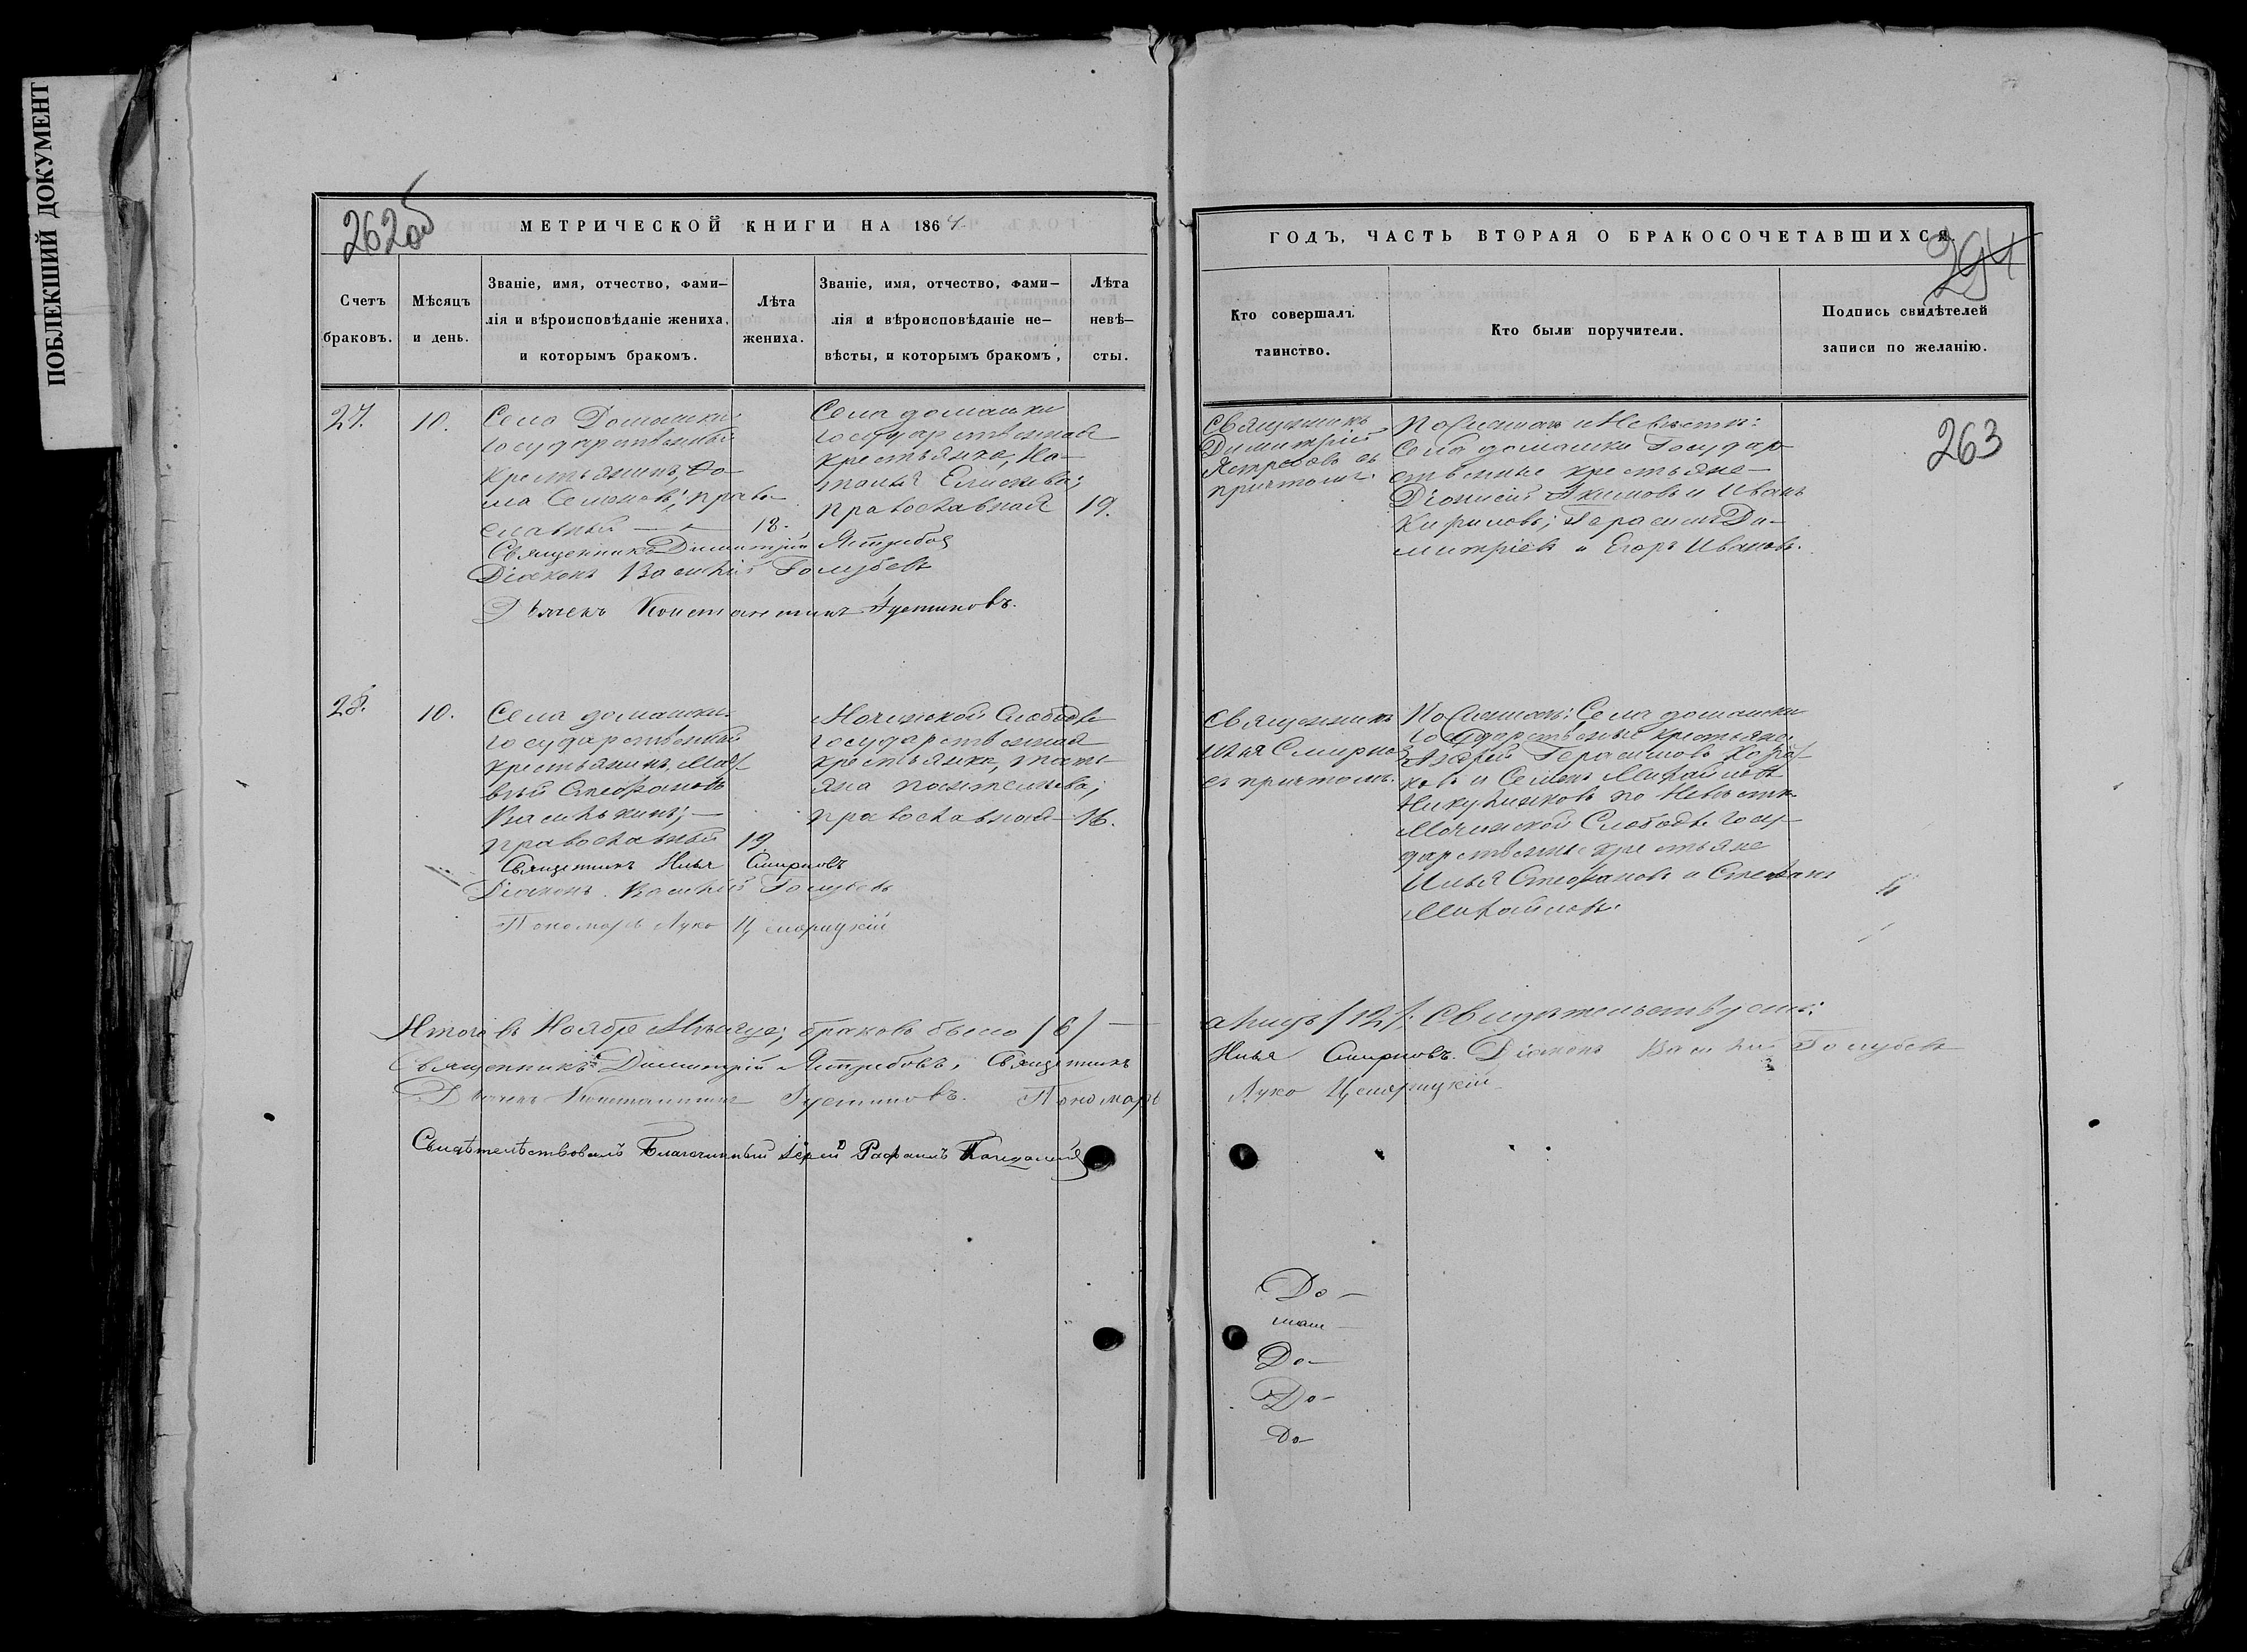 ПОБЛЕКШИЙ ДОКУМЕНТ
262об
МЕТРИЧЕСКОЙ КНИГИ НА 1864
Счетъ браковъ.
Мѣсяцъ и день.
Званіе, имя, отчество, фами-
лія и вѣроисповѣданіе жениха,
и которымъ бракомъ.
Лѣта жениха.
Званіе, имя, отчество, фами-
лія и вѣроисповѣданіе не-
вѣсты, и которымъ бракомъ,
Лѣта невѣ-
сты.
27.
10.
Села Домашки
государственный
крестьянинъ, Ѳо-
ма Семеновъ; право-
славный
18.
Села домашки
государственная
крестьянка, На-
талья Елисеева;
православная
19.
Священникъ Димитрій Ястребовъ
Діаконъ Василій Голубевъ
Дьячекъ Константинъ Густиновъ.
28.
10.
Села домашки
государственный
крестьянинъ, Мат-
вѣй Стефановъ
Василькинъ;
православный
19
Мочинской Слободы
государственная
крестьянка, Тать-
яна Пантелеева;
православная
16.
Священникъ Илья Смирновъ
Діаконъ Василій Голубевъ
Пономарь Лука
Итого въ Ноябрѣ Мѣсяцѣ; браковъ было /6/
Священникъ Димитрій Ястребовъ, Священникъ
Дьячекъ Константинъ Густиновъ. Пономарь
Свидѣтельствовалъ Благочинный Іерей Рафаилъ
ГОДЪ, ЧАСТЬ ВТОРАЯ О БРАКОСОЧЕТАВШИХСЯ.
294
263
Кто совершалъ
таинство.
Кто были поручители.
Подпись свидѣтелей
записи по желанію.
Священникъ
Димитрій
Ястребовъ съ
причтомъ.
По Женихѣ и Невѣстѣ:
Села домашки Государ-
ственные крестьяне
Діонисій Акимовъ и Иванъ
Кириловъ; Герасимъ Ди-
митріевъ и Егоръ Ивановъ.
Священникъ
Илья Смирновъ
съ причтомъ.
По Женихѣ: Села домашки
государственные крестьяне
Герасимовъ
и Семенъ Михайловъ
по Невѣстѣ
Мочинской Слободы Госу-
дарственные крестьяне
Илья Стефановъ и Стефанъ
Михайловъ.
а лицъ /12/. Свидѣтельствуемъ:
Илья Смирновъ. Діаконъ Василій Голубевъ
Лука
До-
маш-
До-
До-
До-